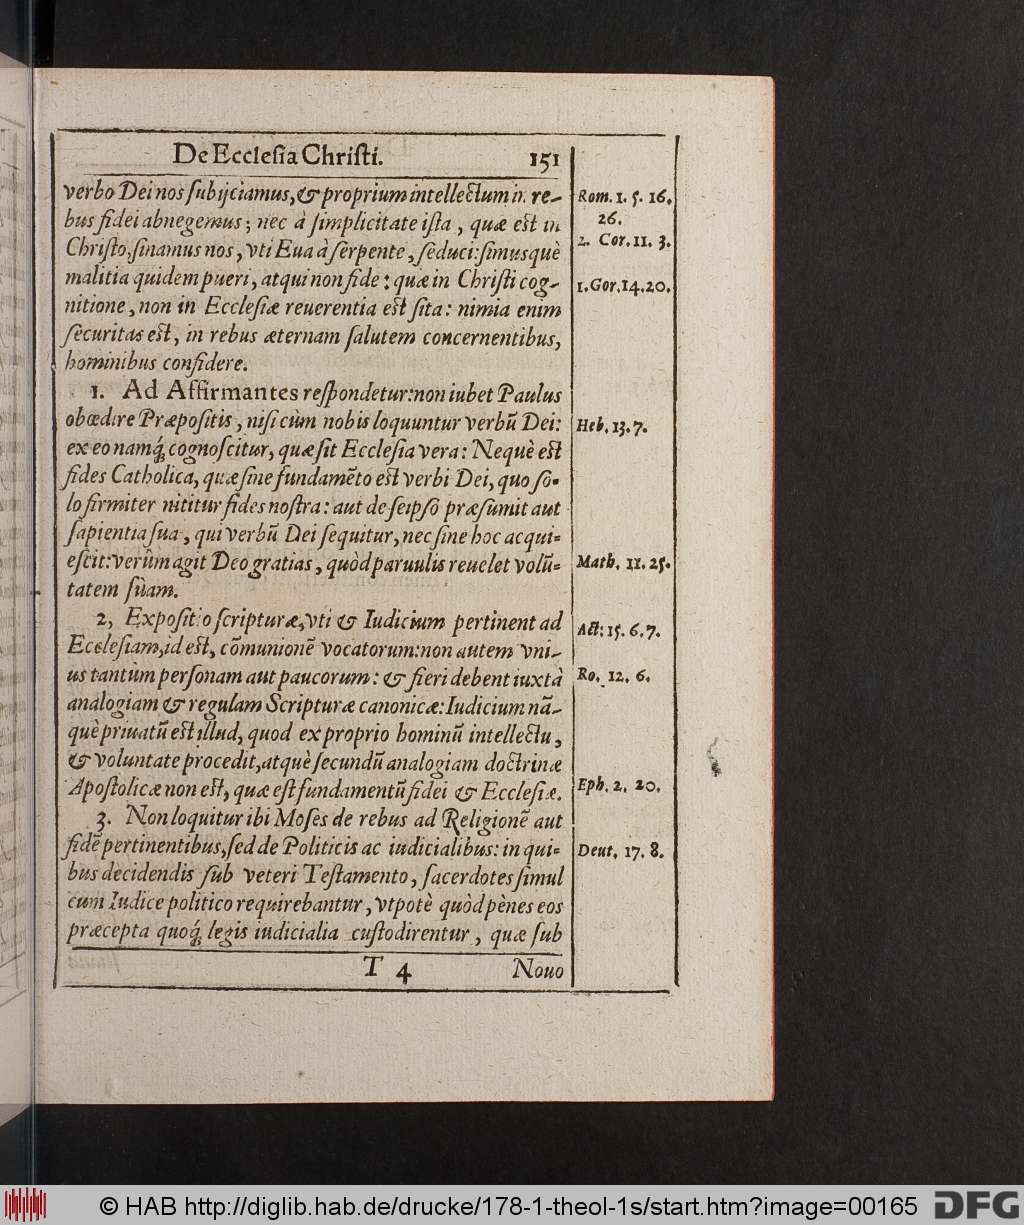 De Ecclesia Christi. 151
verbo Dei nos subijciamus, & proprium intellectum in re-
bus fidei abnegemus; nec à simplicitate ista, quæ est in
Christo, sinamus nos, vti Eua à serpente, seduci: simusquè
malitia quidem pueri, atqui non fide: quæ in Christi cog-
nitione, non in Ecclesiæ reuerentia est sita: nimia enim
securitas est, in rebus æternam salutem concernentibus,
hominibus confidere.
1. Ad Affirmantes respondetur: non iubet Paulus
obœdire Præpositis, nisi cùm nobis loquuntur verbũ Dei:
ex eo namq́; cognoscitur, quæ sit Ecclesia vera: Nequè est
fides Catholica, quæ sine fundamẽto est verbi Dei, quo so-
lo firmiter nititur fides nostra: aut de seipso præsumit aut
sapientia sua, qui verbũ Dei sequitur, nec sine hoc acqui-
escit: verùm agit Deo gratias, quòd paruulis reuelet volũ-
tatem sùam.
2, Expositio scripturæ, vti & Iudicium pertinent ad
Ecclesiam, id est, cõmunionẽ vocatorum: non autem vni-
us tantùm personam aut paucorum: & fieri debent iuxtà
analogiam & regulam Scripturæ canonicæ: Iudicium nã-
què priuatũ est illud, quod ex proprio hominũ intellectu,
& voluntate procedit, atquè secundũ analogiam doctrinæ
Apostolicæ non est, quæ est fundamentũ fidei & Ecclesiæ.
3. Non loquitur ibi Moses de rebus ad Religionẽ aut
fidẽ pertinentibus, sed de Politicis ac iudicialibus: in qui-
bus decidendis sub veteri Testamento, sacerdotes simul
cum Iudice politico requirebantur, vtpotè quòd pènes eos
præcepta quoq́; legis iudicialia custodirentur, quæ sub
T 4 Nouo
Rom. 1. 5. 16.
26.
2. Cor. 11. 3.
1. Cor. 14. 20.
Heb. 13. 7.
Math. 11. 25.
Act: 15. 6. 7.
Ro. 12. 6.
Eph. 2. 20.
Deut. 17. 8.
© HAB http://diglib.hab.de/drucke/178-1-theol-1s/start.htm?image=00165
DFG